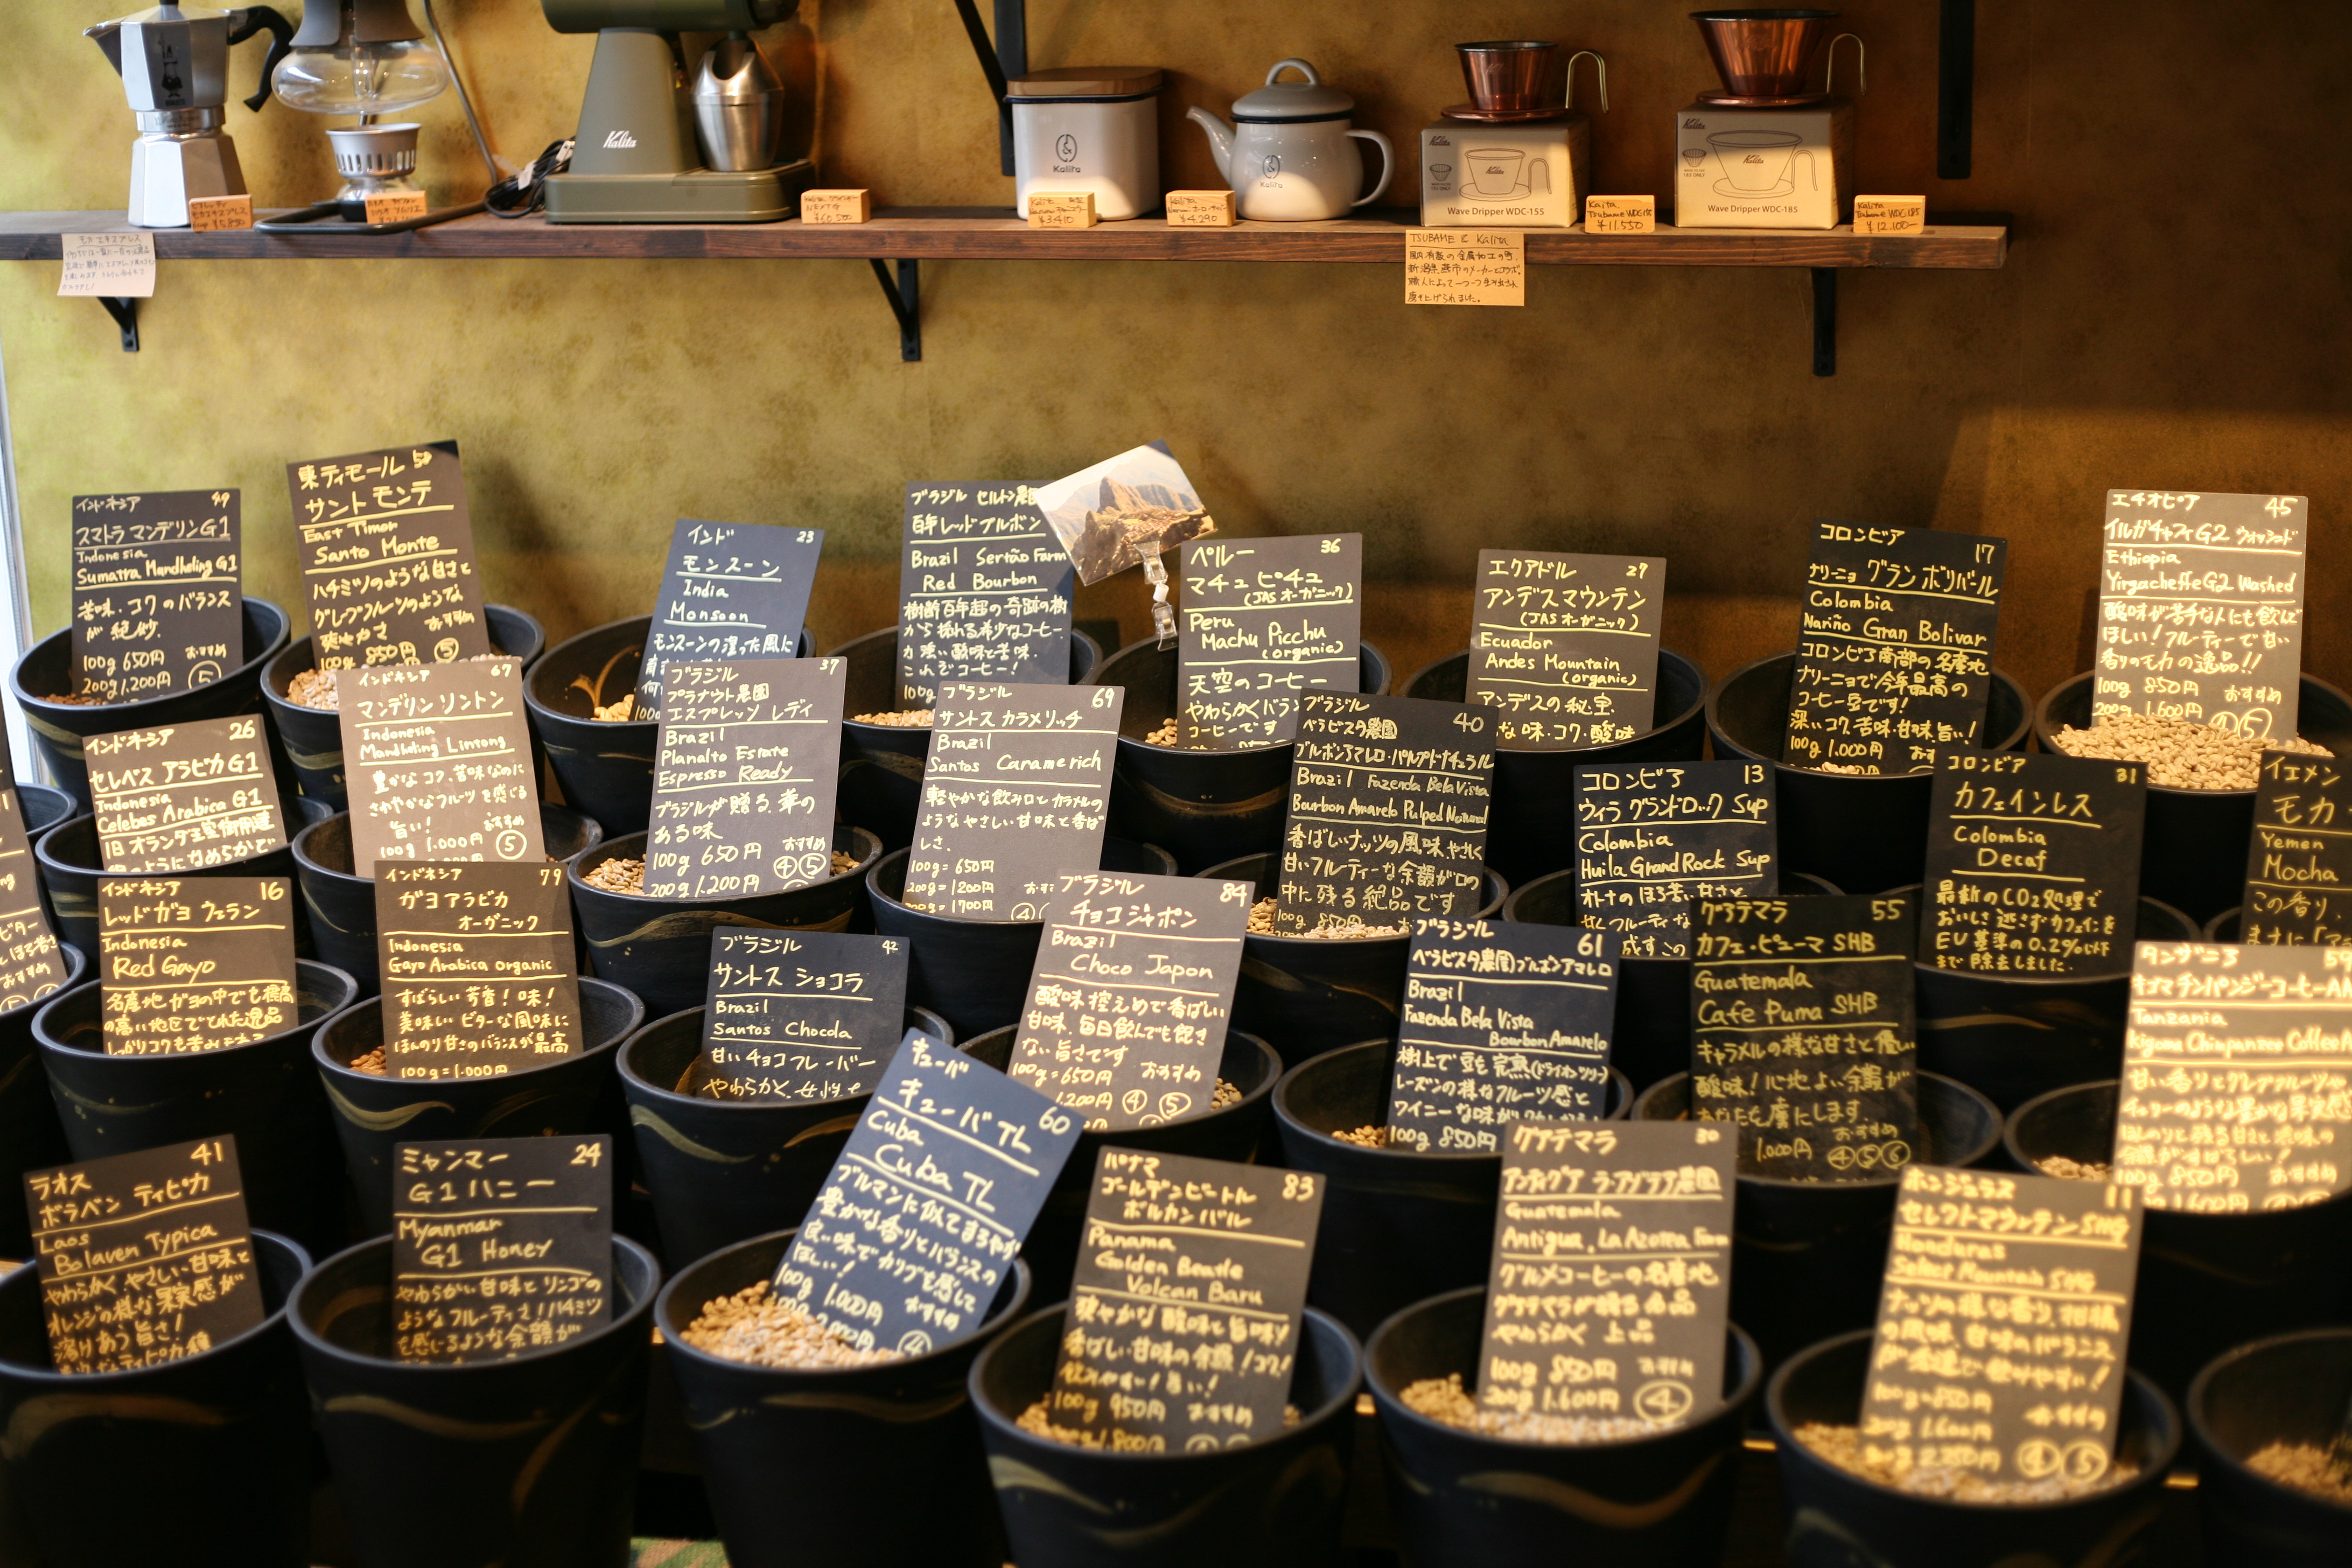 Kalita
Kalita
¥3410
Kalita
¥4,290
Kalita
Wave Dripper WDC-155
Kalita
Tsubame WDC-155
¥11.550
Kalita
Wave Dripper WDC-185
Kalita
Tsubame WDC-185
¥12.100-
¥60,500
¥5,850
モカエキスプレス
TSUBAME & Kalita
国内有数の金属加工の町、
新潟県燕市のメーカーとコラボ。
職人によって一つ一つ生み出され
磨き上げられました。
インドネシア 49
スマトラ マンデリンG1
Indonesia
Sumatra Mandheling G1
苦味・コクのバランス
が絶妙。
100g 650円 おすすめ
200g 1.200円 ⑤
東ティモール 50
サント モンテ
East Timor
Santo Monte
ハチミツのような甘さと
グレープフルーツのような
爽やかさ おすすめ
100g 850円 ⑤
インド 23
モンスーン
India
Monsoon
モンスーンの湿った風に
ブラジル セルトン農園
百年レッドブルボン
Brazil Sertão Farm
Red Bourbon
樹齢百年超の奇跡の樹
から採れる希少なコーヒー
力強い酸味と苦味。
これぞコーヒー!
100g
ペルー 36
マチュピチュ
(JAS オーガニック)
Peru
Machu Picchu
(organic)
天空のコーヒー
やわらかくバラン
コーヒーです
エクアドル 27
アンデスマウンテン
(JAS オーガニック)
Ecuador
Andes Mountain
(organic)
アンデスの秘宝。
な味・コク・酸味
コロンビア 17
ナリーニョ グランボリバール
Colombia
Nariño Gran Bolivar
コロンビア南部の名産地
ナリーニョで今年最高の
コーヒー豆です!
深いコク、苦味、甘味、旨い!
100g 1.000円 おす
エチオピア 45
イルガチャフィG2 ウォッシュド
Ethiopia
Yirgacheffe G2 Washed
酸味が苦手な人にも飲んで
ほしい!フルーティーで甘い
香りのモカの逸品!!
100g 850円 おすすめ
200g 1.600円 ④⑤
インドネシア 26
セレベス アラビカG1
Indonesia
Celebes Arabica G1
旧オランダ王室御用達
のようになめらかで
インドネシア 67
マンデリン リントン
Indonesia
Mandheling Lintong
豊かなコク、苦味なのに
さわやかなフルーツを感じる
旨い! おすすめ
100g 1.000円 ⑤
ブラジル 37
プラナウト農園
エスプレッソ レディ
Brazil
Planalto Estate
Espresso Ready
ブラジルが贈る、華の
ある味 おすすめ
100g 650円 ④⑤
200g 1.200円
ブラジル 69
サントス カラメリッチ
Brazil
Santos Caramerich
軽やかな飲み口とカラメルの
ようなやさしい甘味と香ば
しさ。
100g=650円
200g=1200円
=1700円 ④
ブラジル 40
ベラビスタ農園
ブルボンアマレロ・パルプドナチュラル
Brazil Fazenda Bela Vista
Bourbon Amarelo Pulped Natural
香ばしいナッツの風味、やさしく
甘いフルーティーな余韻が口の
中に残る絶品です
100g 850円
コロンビア 13
ウィラ グランドロック Sup
Colombia
Huila Grand Rock Sup
オトナのほろ苦い甘さと
コロンビア 31
カフェインレス
Colombia
Decaf
最新のCO2処理で
おいしさ逃さずカフェインを
EU基準の0.2%以下
まで除去しました。
イエメン
モカ
Yemen
Mocha
この香り、
まさに「
インドネシア 16
レッドガヨ ウェラン
Indonesia
Red Gayo
名産地ガヨの中でも標高
の高い地区でとれた逸品
しっかりコクも苦みもある
インドネシア 79
ガヨアラビカ
オーガニック
Indonesia
Gayo Arabica organic
すばらしい芳香!味!
美味しいビターな風味に
ほんのり甘さのバランスが最高
100g=1.000円
ブラジル 42
サントス ショコラ
Brazil
Santos Chocola
甘いチョコフレーバー
やわらかく、女性も
ブラジル 84
チョコジャポン
Brazil
Choco Japon
酸味控えめで香ばしい
甘味、毎日飲んでも飽き
ない旨さです
100g=650円 おすすめ
1.200円 ④⑤
ブラジル 61
ベラビスタ農園ブルボンアマレロ
Brazil
Fazenda Bela Vista
Bourbon Amarelo
樹上で豆を完熟(ドライオンツリー)
レーズンの様なフルーツ感と
100g 850円
グアテマラ 55
カフェ・ピューマ SHB
Guatemala
Cafe Puma SHB
キャラメルの様な甘さと優しい
酸味!心地よい余韻が
あなたを虜にします。
1.000円 おすすめ
④⑤⑥
タンザニア
チンパンジーコーヒーAA
Tanzania
Kigoma Chimpanzee Coffee
甘い香りとグレープフルーツや
チェリーのような豊かな果実感
100g 850円
1.600円
ラオス 41
ボラベン ティピカ
Laos
Bolaven Typica
やわらかくやさしい甘味と
オレンジの様な果実感が
溶けあう旨さ!
ミャンマー 24
G1 ハニー
Myanmar
G1 Honey
やわらかい甘味とリンゴの
ようなフルーティさ!ハチミツ
を感じるような余韻が
キューバ 60
キューバTL
Cuba
Cuba TL
ブルマンに似てまろやか
豊かな香りとバランスの
良い味でカリブを感じて
ほしい!
100g 1.000円 おすすめ
④
パナマ 83
ゴールデンビートル
ボルカンバル
Panama
Golden Beatle
Volcan Baru
爽やかな酸味と旨味!
香ばしい甘味の余韻!コク!
飲みやすい!旨い!
100g 950円 おすすめ
1.800円
グアテマラ 30
アンティグア ラ・アゾテア農園
Guatemala
Antigua, La Azotea Farm
グルメコーヒーの名産地
グアテマラが贈る名品
やわらかく 上品
100g 850円 おすすめ
200g 1.600円 ④
ホンジュラス 11
セレクトマウンテン SHG
Honduras
Select Mountain SHG
ナッツの様な香り、柑橘
の風味、甘味のバランス
が最適で飲みやすい!
100g=850円
200g 1.600円 おすすめ
④⑤